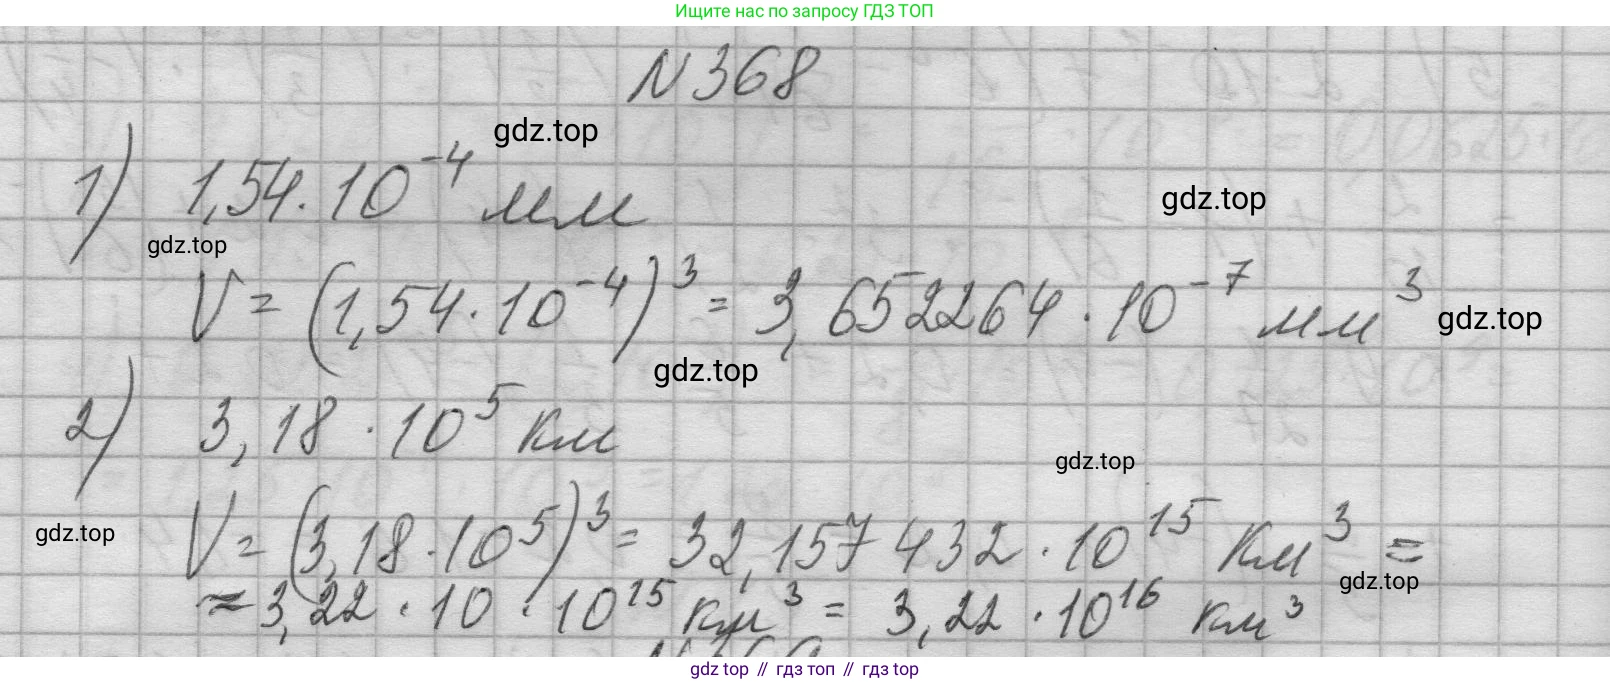 Ищите нас по запросу ГДЗ ТОП
N 368
gdz.top
1) 1,54 · 10⁻⁴ мм
gdz.top
gdz.top
V = (1,54 · 10⁻⁴)³ = 3,652264 · 10⁻⁷ мм³
gdz.top
gdz.top
2) 3,18 · 10⁵ км
gdz.top
V = (3,18 · 10⁵)³ = 32,157432 · 10¹⁵ км³ =
gdz.top
gdz.top
≈ 3,22 · 10 · 10¹⁵ км³ = 3,22 · 10¹⁶ км³
gdz top // гдз топ // гдз top